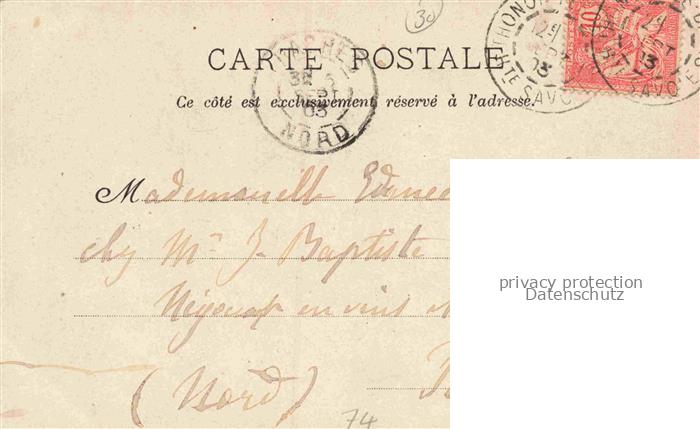 30
CARTE POSTALE
Ce côté est exclusivement réservé à l'adresse.
THONON
29
03
HTE SAVOIE
10
SEPT
03
NORD
Mademoiselle
chez Mr J. Baptiste
Négociant en vins
(Nord)
74
privacy protection
Datenschutz